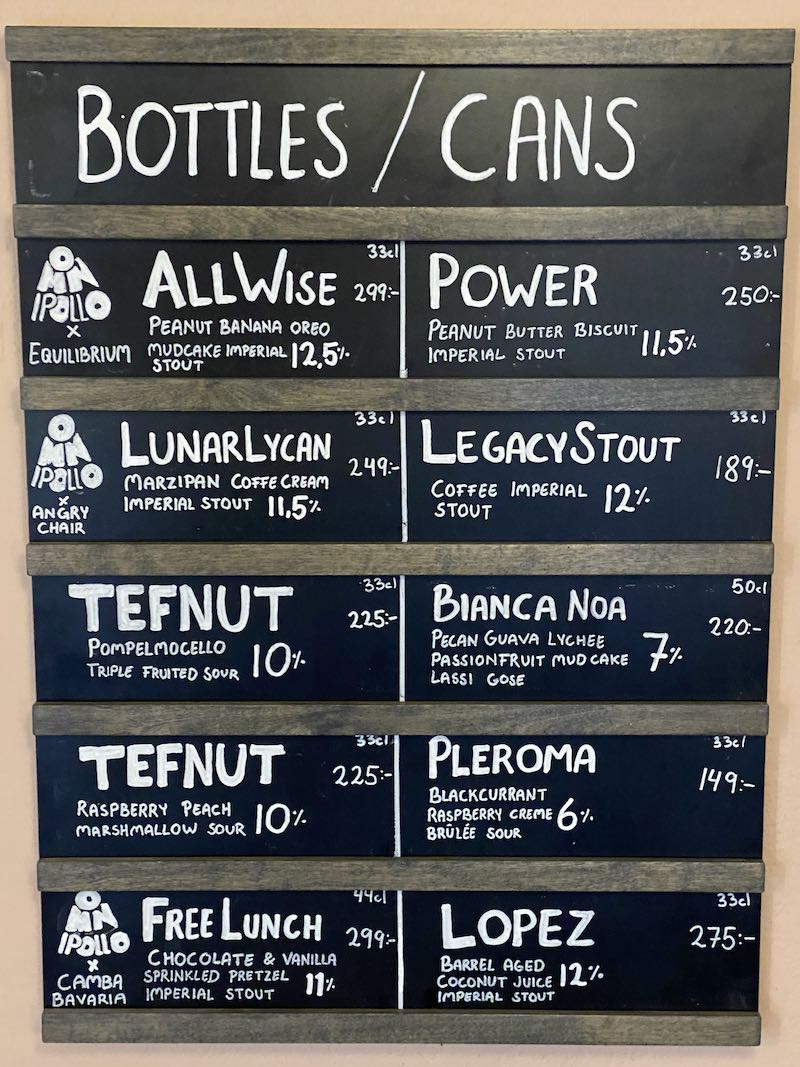 BOTTLES / CANS
OMNIPOLLO
x
EQUILIBRIUM
ALLWISE
33cl
299:-
PEANUT BANANA OREO
MUDCAKE IMPERIAL
STOUT
12,5%
POWER
33cl
250:-
PEANUT BUTTER BISCUIT
IMPERIAL STOUT
11,5%
OMNIPOLLO
x
ANGRY
CHAIR
LUNARLYCAN
33cl
249:-
MARZIPAN COFFE CREAM
IMPERIAL STOUT 11,5%
LEGACY STOUT
33cl
189:-
COFFEE IMPERIAL
STOUT
12%
TEFNUT
33cl
225:-
POMPELMOCELLO
TRIPLE FRUITED SOUR
10%
BIANCA NOA
50cl
220:-
PECAN GUAVA LYCHEE
PASSIONFRUIT MUD CAKE
LASSI GOSE
7%
TEFNUT
33cl
225:-
RASPBERRY PEACH
MARSHMALLOW SOUR
10%
PLEROMA
33cl
149:-
BLACKCURRANT
RASPBERRY CREME
BRÛLÉE SOUR
6%
OMNIPOLLO
x
CAMBA
BAVARIA
FREE LUNCH
44cl
299:-
CHOCOLATE & VANILLA
SPRINKLED PRETZEL
IMPERIAL STOUT
11%
LOPEZ
33cl
275:-
BARREL AGED
COCONUT JUICE
IMPERIAL STOUT
12%